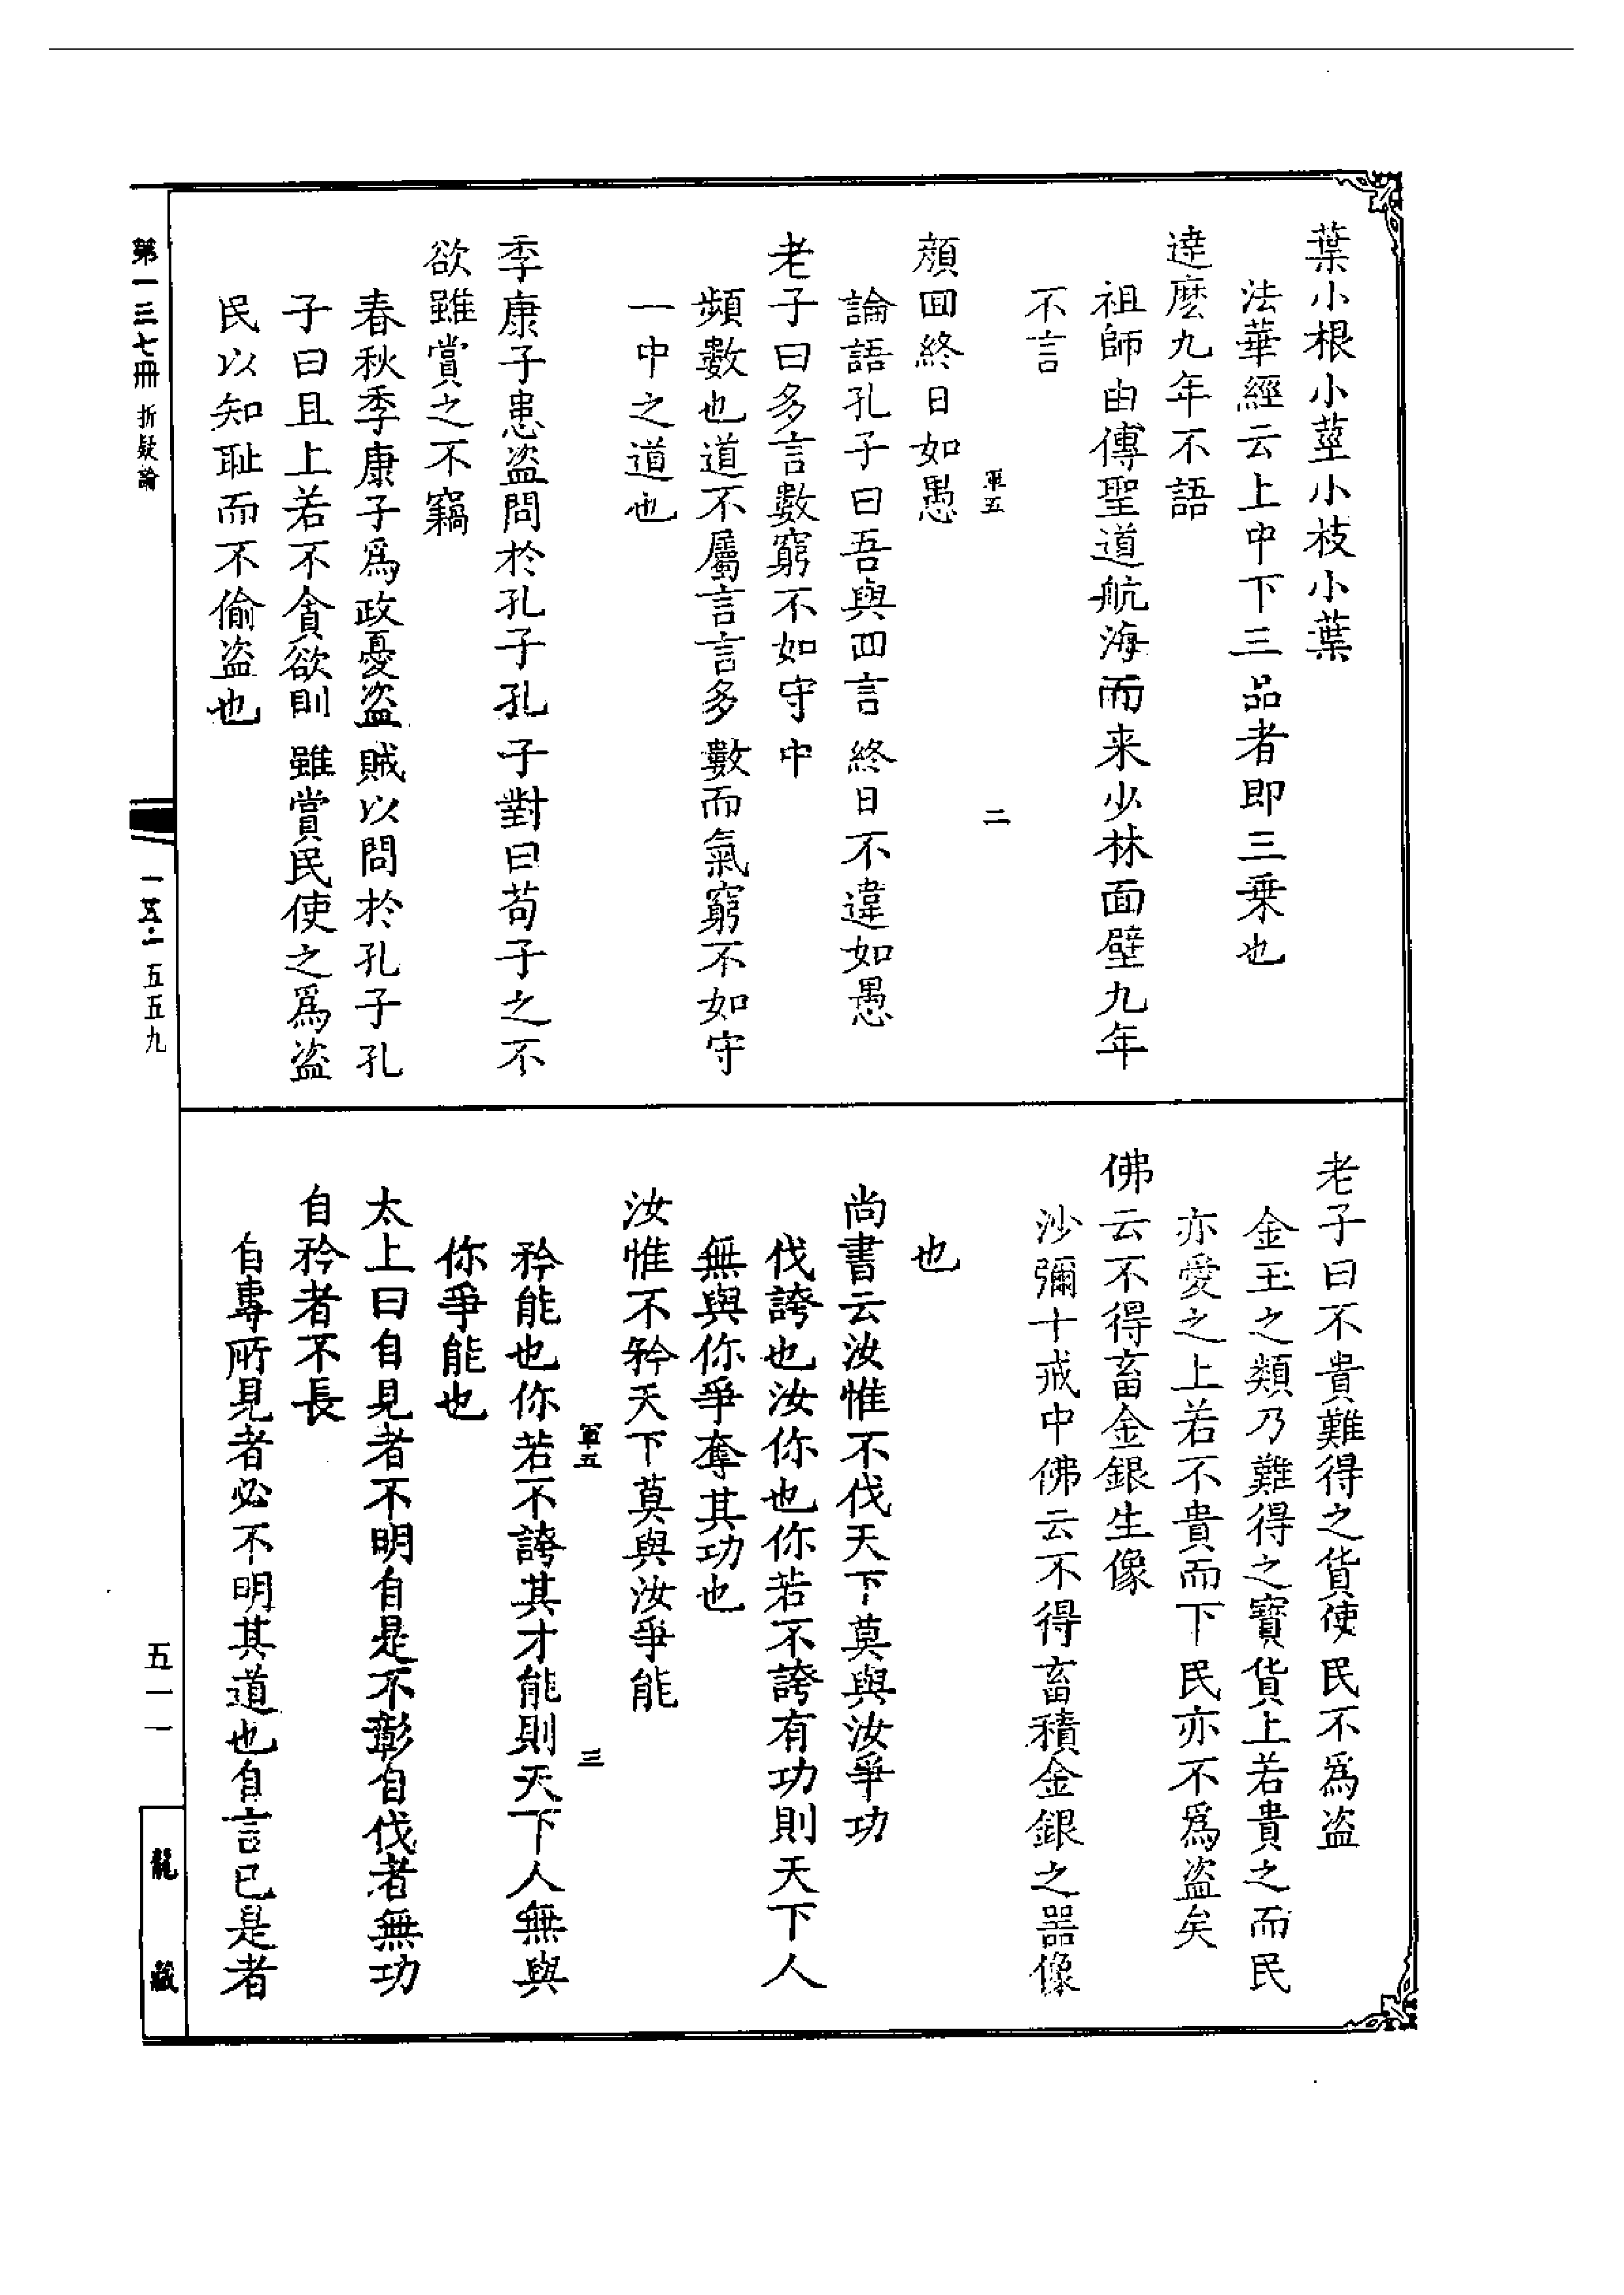 葉小根小莖小枝小葉
法華經云上中下三品者即三乗也
達麽九年不語
祖師由傳聖道航海而来少林面壁九年
不言
軍五
二
顔囬終日如愚
論語孔子曰吾與囬言終日不違如愚
老子曰多言數窮不如守中
頻數也道不屬言言多數而氣窮不如守
一中之道也
季康子患盗問於孔子孔子對曰苟子之不
欲雖賞之不竊
春秋季康子爲政憂盗賊以問於孔子孔
子曰且上若不貪欲則雖賞民使之爲盗
民以知耻而不偷盗也
老子曰不貴難得之貨使民不爲盗
金玉之類乃難得之寳貨上若貴之而民
亦愛之上若不貴而下民亦不爲盗矣
佛云不得畜金銀生像
沙彌十戒中佛云不得畜積金銀之噐像
也
尚書云汝惟不伐天下莫與汝爭功
伐誇也汝你也你若不誇有功則天下人
無與你爭奪其功也
汝惟不矜天下莫與汝爭能
軍五
三
矜能也你若不誇其才能則天下人無與
你爭能也
太上曰自見者不明自是不彰自伐者無功
自矜者不長
自專所見者必不明其道也自言已是者
第一三七冊 折疑論
一五·一五五九
五一一
龍藏